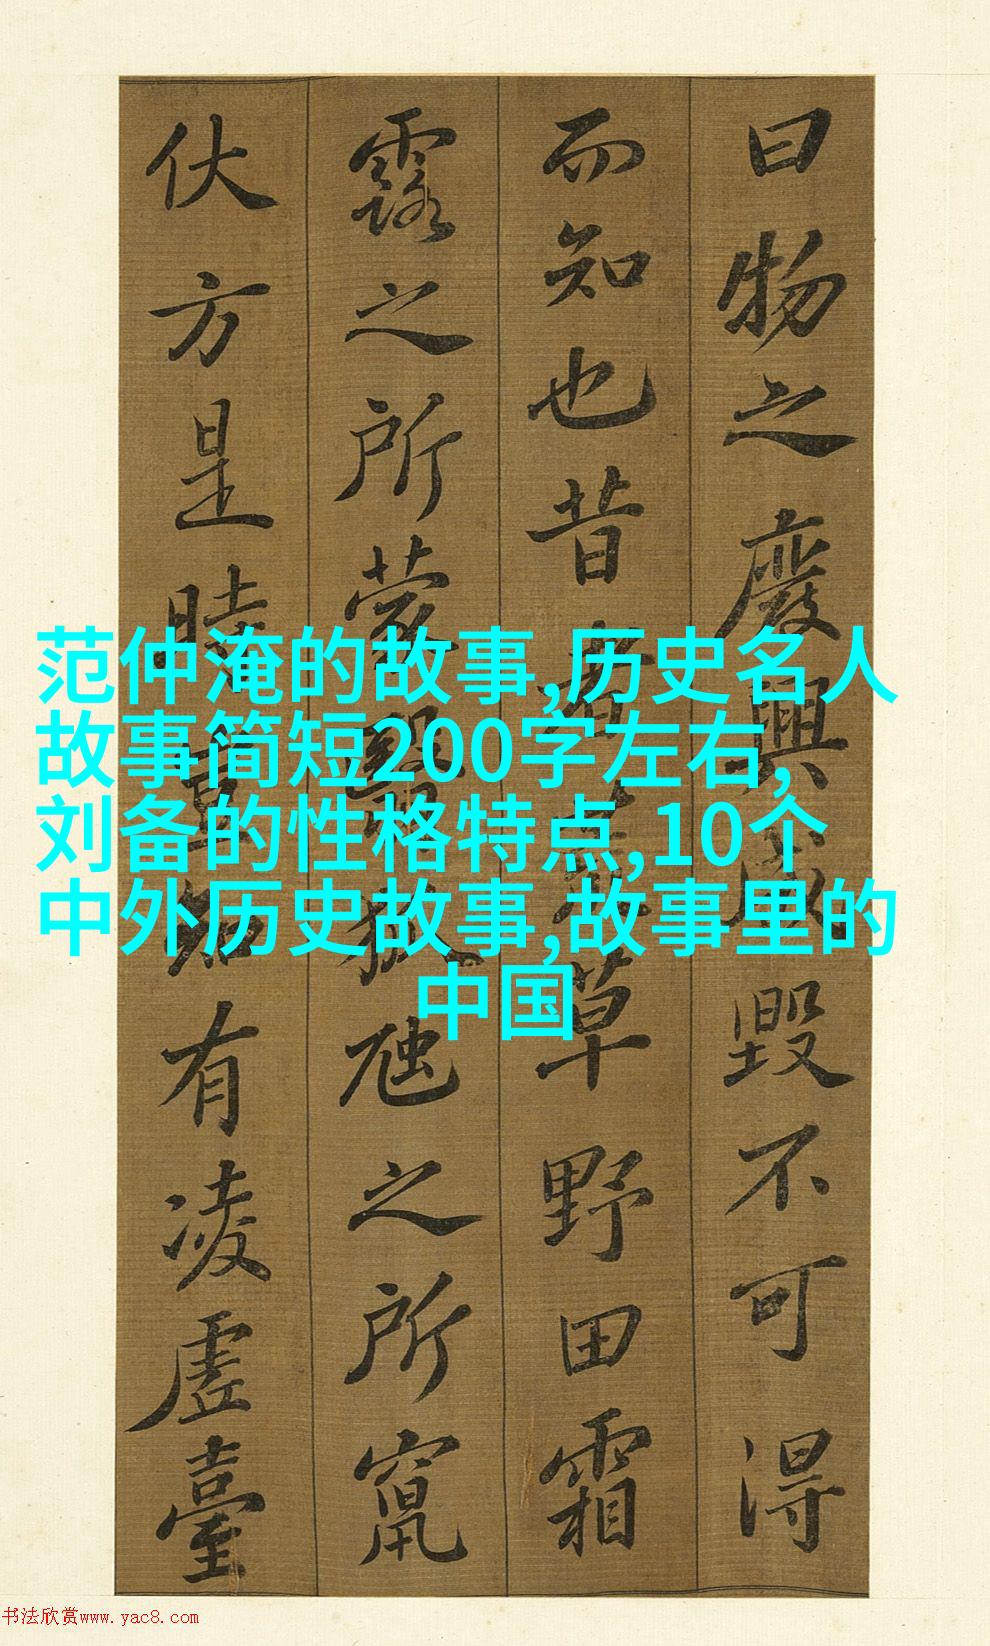 曰物之廢興成毀不可得
而知也昔者荒草野田霜
露之所蒙翳狐虺之所竄
伏方是時豈知有凌虛臺
范仲淹的故事,历史名人
故事简短200字左右,
刘备的性格特点,10个
中外历史故事,故事里的
中国
书法欣赏www.yac8.com